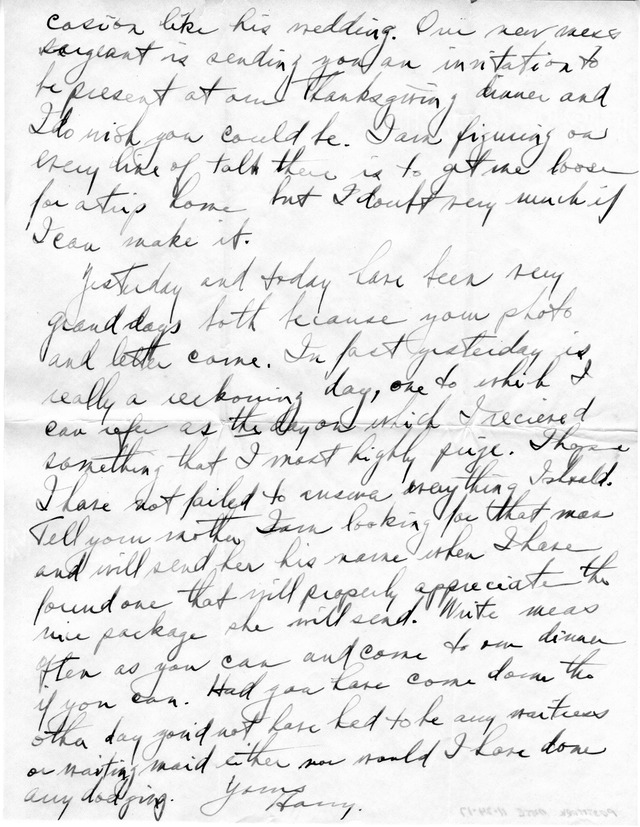 casion like his wedding. Our new mess
sargeant is sending you an invitation to
be present at our Thanksgiving dinner and
I do wish you could be. I am figuring on
every line of talk there is to get me loose
for a trip home but I doubt very much if
I can make it.
Yesterday and today have been very
grand days both because your photo
and letter come. In fact yesterday is
really a reckoning day, one to which I
can refer as the day on which I recieved
something that I most highly prize. I hope
I have not failed to answer everything I should.
Tell your mother I am looking for that man
and will send her his name when I have
found one that will properly appreciate the
nice package she will send. Write me as
often as you can and come to our dinner
if you can. Had you have come down the
other day you'd not have had to be any waitress
or waiting maid either nor would I have done
any dodging. Yours
Harry.